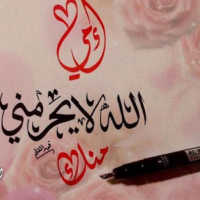 أمي
الله لا يحرمني
منك